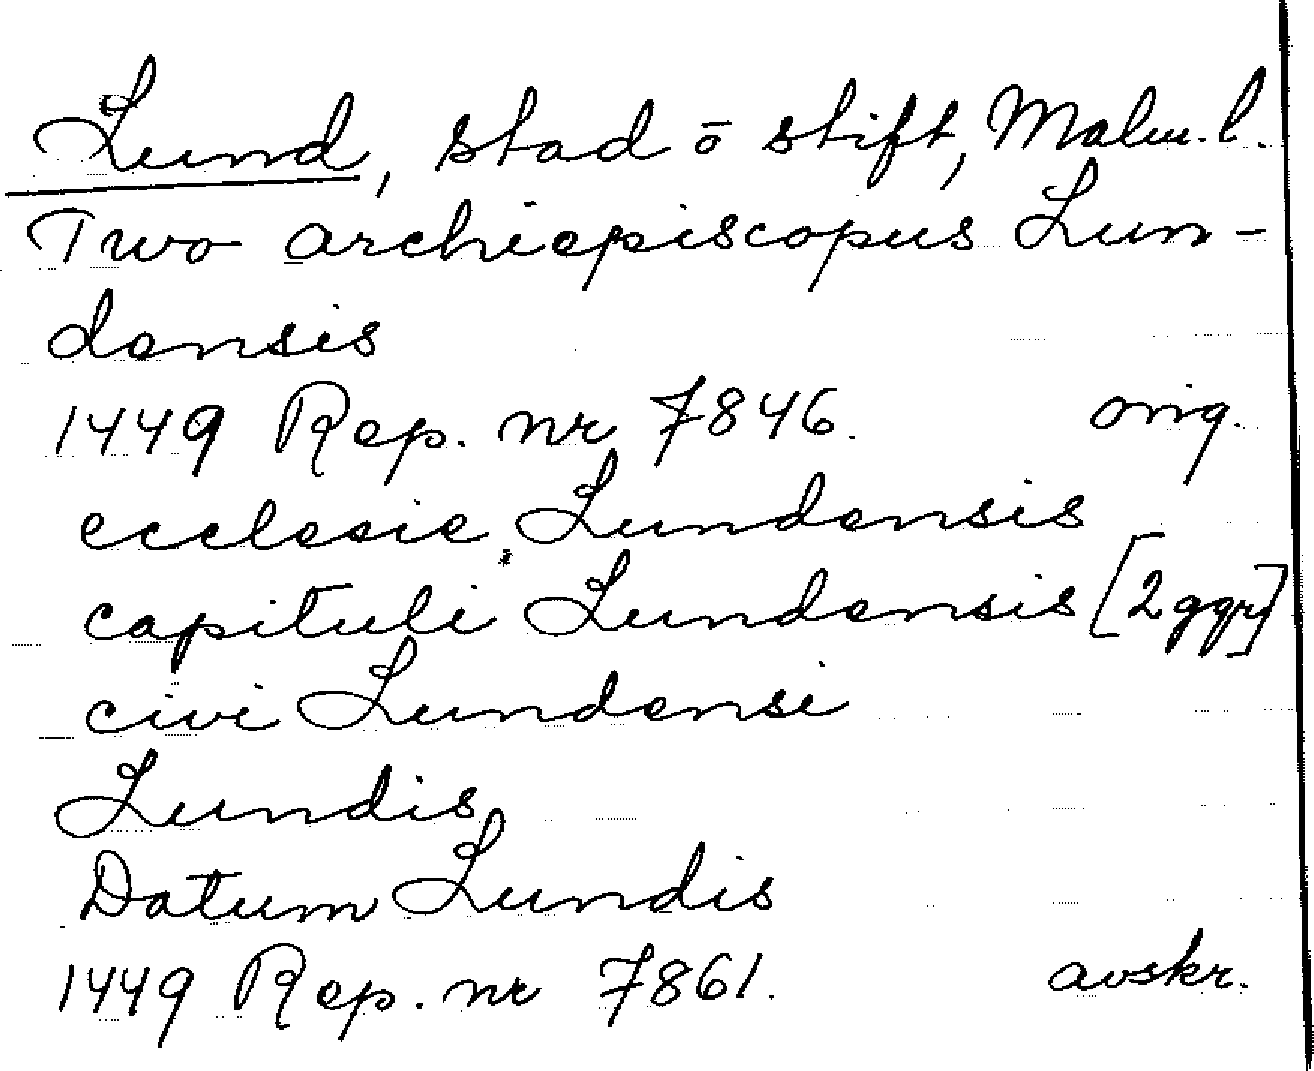 Lund, stad ō stift, Malm. l.
Two archiepiscopus Lun-
densis
1449 Rep. nr 7846. orig.
ecclesie Lundensis
capituli Lundensis [2 ggr]
civi Lundensi
Lundis
Datum Lundis
1449 Rep. nr 7861. avskr.